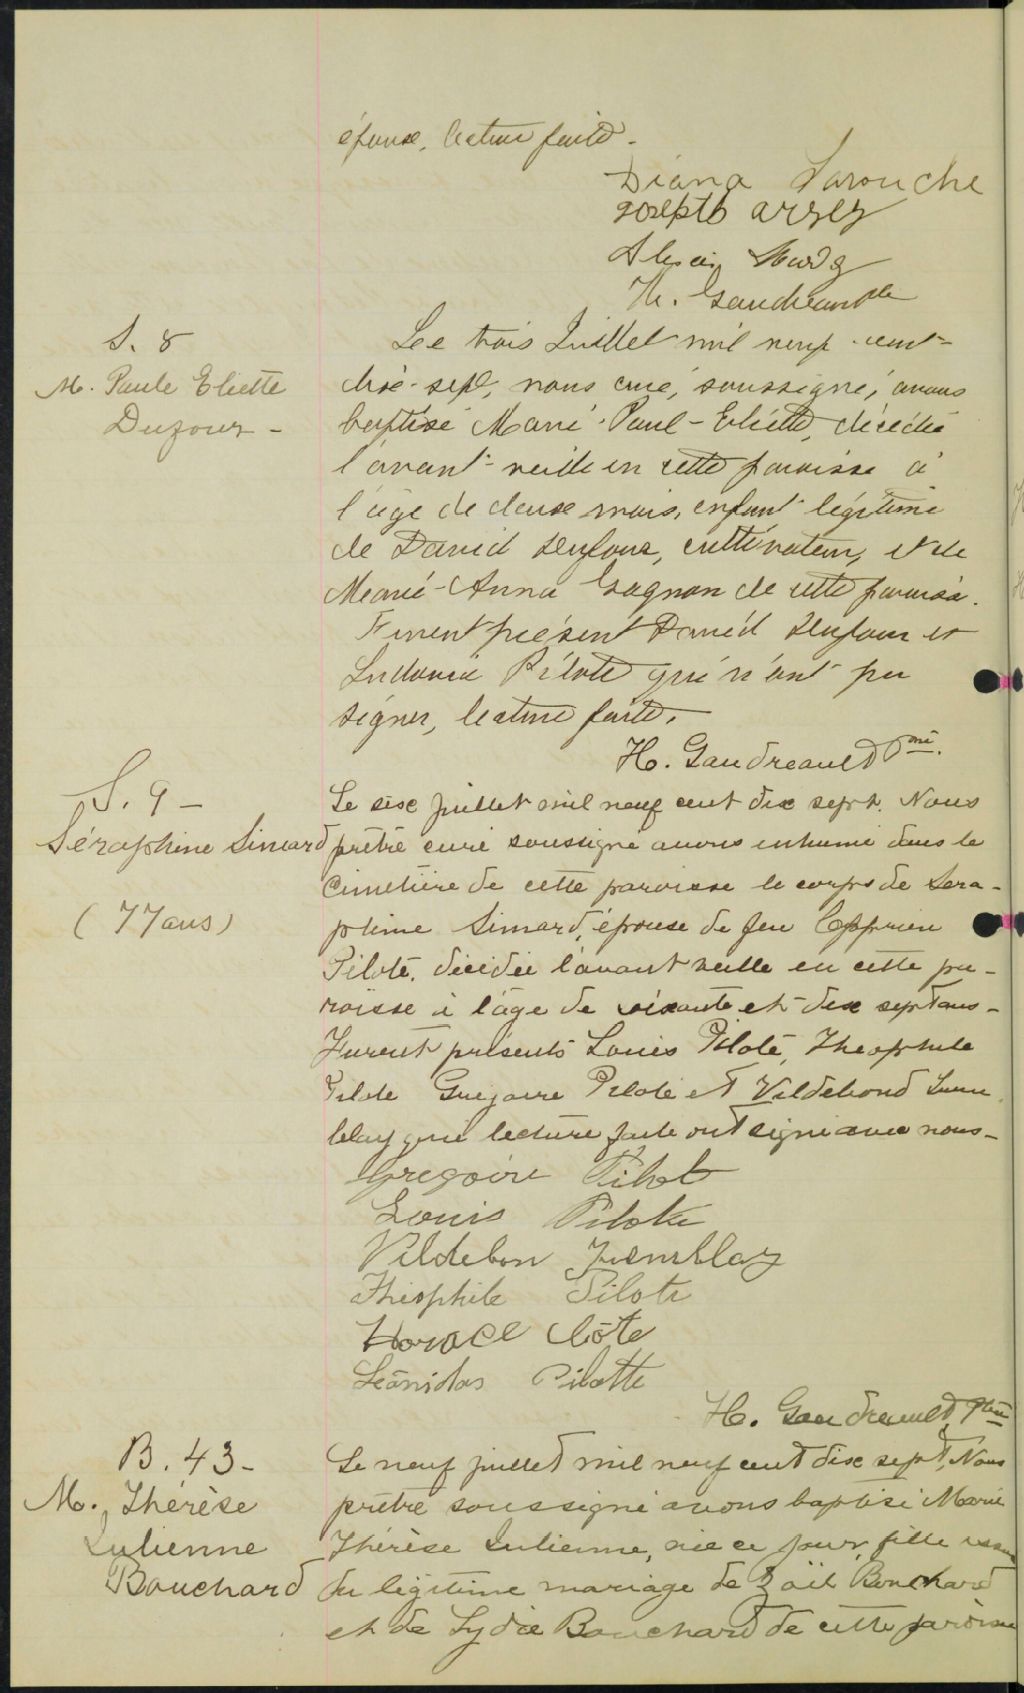 épouse, lecture faite -
Diana Larouche
Joseph
H. Gaudreault ptre
S. 8
M. Paule Eliette
Dufour -
Le trois Juillet mil neuf-cent-
dix-sept, nous curé, soussigné, avons
baptisé Marie-Paul-Eliette, décédée
l'avant-veille en cette paroisse à
l'âge de deux mois, enfant légitime
de David Dufour, cultivateur, et de
Marie-Anna Gagnon de cette paroisse.
Furent présent David Dufour et
Ludovic Pilote qui n'ont pu
signer, lecture faite.
H. Gaudreault Ptre.
S. 9 -
Séraphine Simard
(77 ans)
Le six juillet mil neuf cent dix sept. Nous
prêtre curé soussigné avons inhumé dans le
cimetière de cette paroisse le corps de Sera-
phine Simard, épouse de feu
Pilote, décédée l'avant veille en cette pa-
roisse à l'âge de soixante et dix sept ans -
Furent présents Louis Pilote, Theophile
Pilote Gregoire Pilote et Vildebond Trem
blay qui lecture faite ont signé avec nous -
Gregoire Pilot
Louis Pilote
Vildebon Tremblay
Théophile Pilote
Horace Côte
Léonidas Pilotte
H. Gaudreault, Ptre
B. 43 -
M. Thérèse
Julienne
Bouchard
Le neuf juillet mil neuf cent dix sept, Nous
prêtre soussigné avons baptisé Marie
Thérèse Julienne, née ce jour, fille issue
du légitime mariage de Zoël Bouchard
et de Lydie Bouchard de cette paroisse